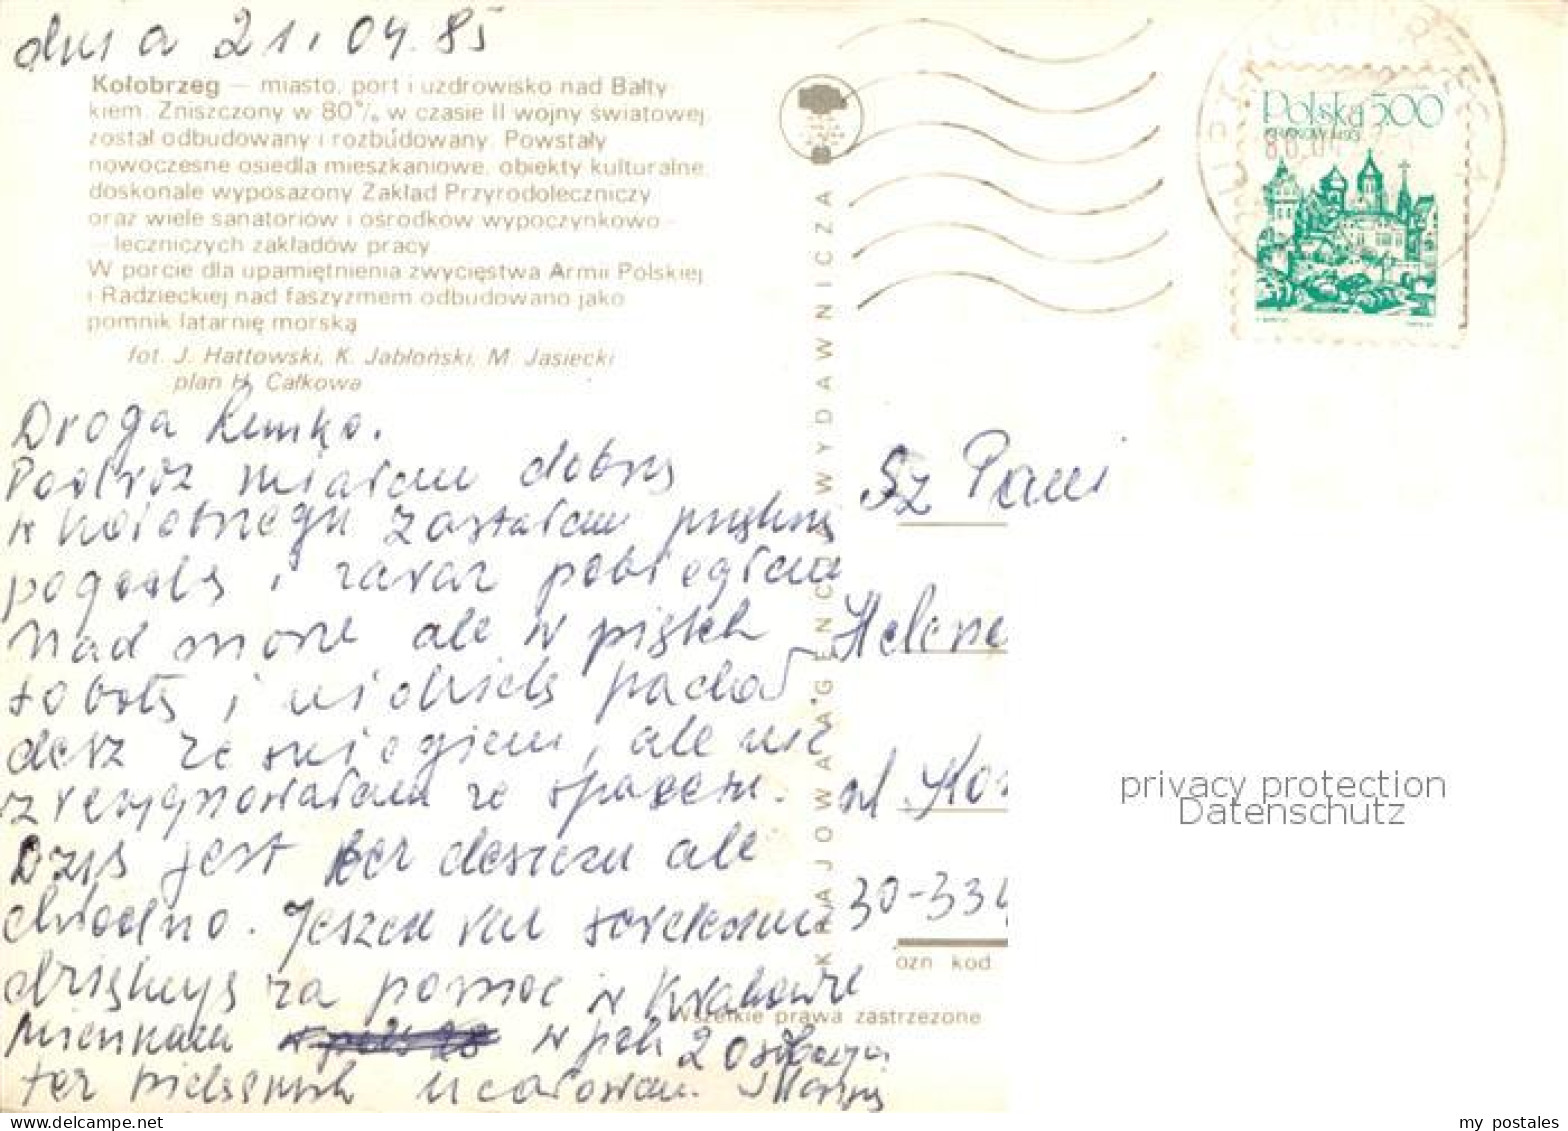 dnia 21.04.85
Kołobrzeg — miasto, port i uzdrowisko nad Bałty-
kiem. Zniszczony w 80% w czasie II wojny światowej
został odbudowany i rozbudowany. Powstały
nowoczesne osiedla mieszkaniowe, obiekty kulturalne,
doskonale wyposażony Zakład Przyrodoleczniczy
oraz wiele sanatoriów i ośrodków wypoczynkowo-
-leczniczych zakładów pracy.
W porcie dla upamiętnienia zwycięstwa Armii Polskiej
i Radzieckiej nad faszyzmem odbudowano jako
pomnik latarnię morską
fot. J. Hattowski, K. Jabłoński, M. Jasiecki
plan H. Całkowa
Droga
Podróż miałam dobrą
w Kołobrzegu zastałam piękną
pogodę i zaraz pobiegłam
nad morze ale w piątek
sobotę i niedzielę padał
deszcz ze śniegiem, ale nie
zrezygnowałam ze spaceru.
Dziś jest bez deszczu ale
chłodno. Jeszcze raz serdecznie
dziękuję za pomoc w Krakowie
Mieszkam w pok 2 osobowym
ter Ucałowan.
KRAJOWA AGENCJA WYDAWNICZA
Polska 500
86.04
Sz Pani
Helena
ul Kon
30-334
ozn kod
Wszelkie prawa zastrzeżone
privacy protection
Datenschutz
my postales